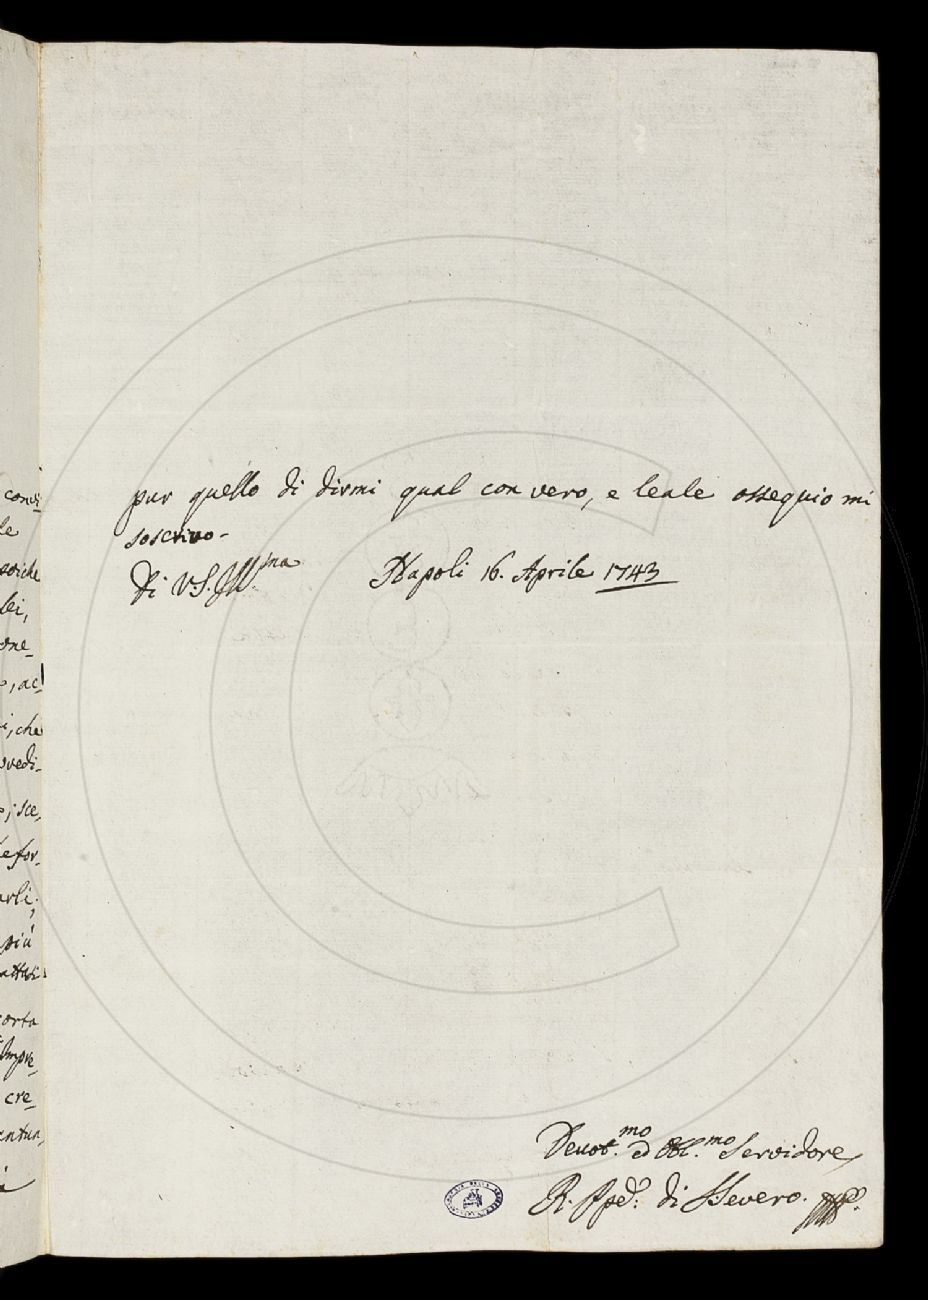 convi-
le
poiche
lei,
one-
e, ac-
i, che
vvedi-
e, sce-
e for-
arli;
più
orta
Impre-
cre-
entu-
pur quello di dirmi qual con vero, e leale ossequio mi
soscrivo-
Di V.S. Ill.ma Napoli 16. Aprile 1743
Devot.mo ed Obl.mo Servidore
di SSevero.